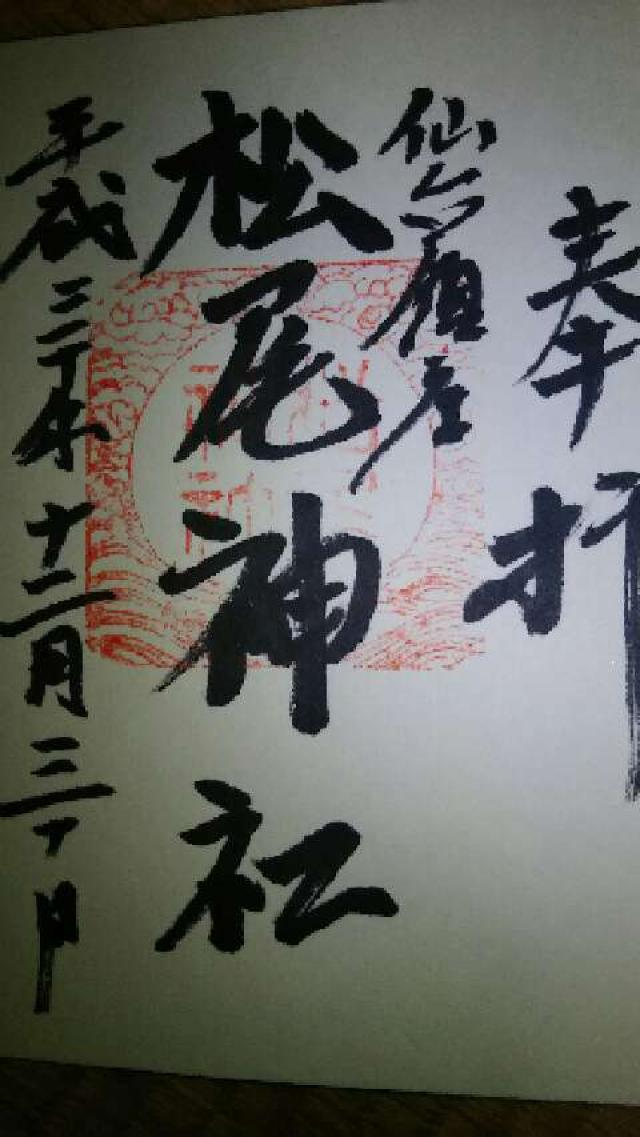 奉拝
仙台鎮座
松尾神社
平成三十年十二月三十日